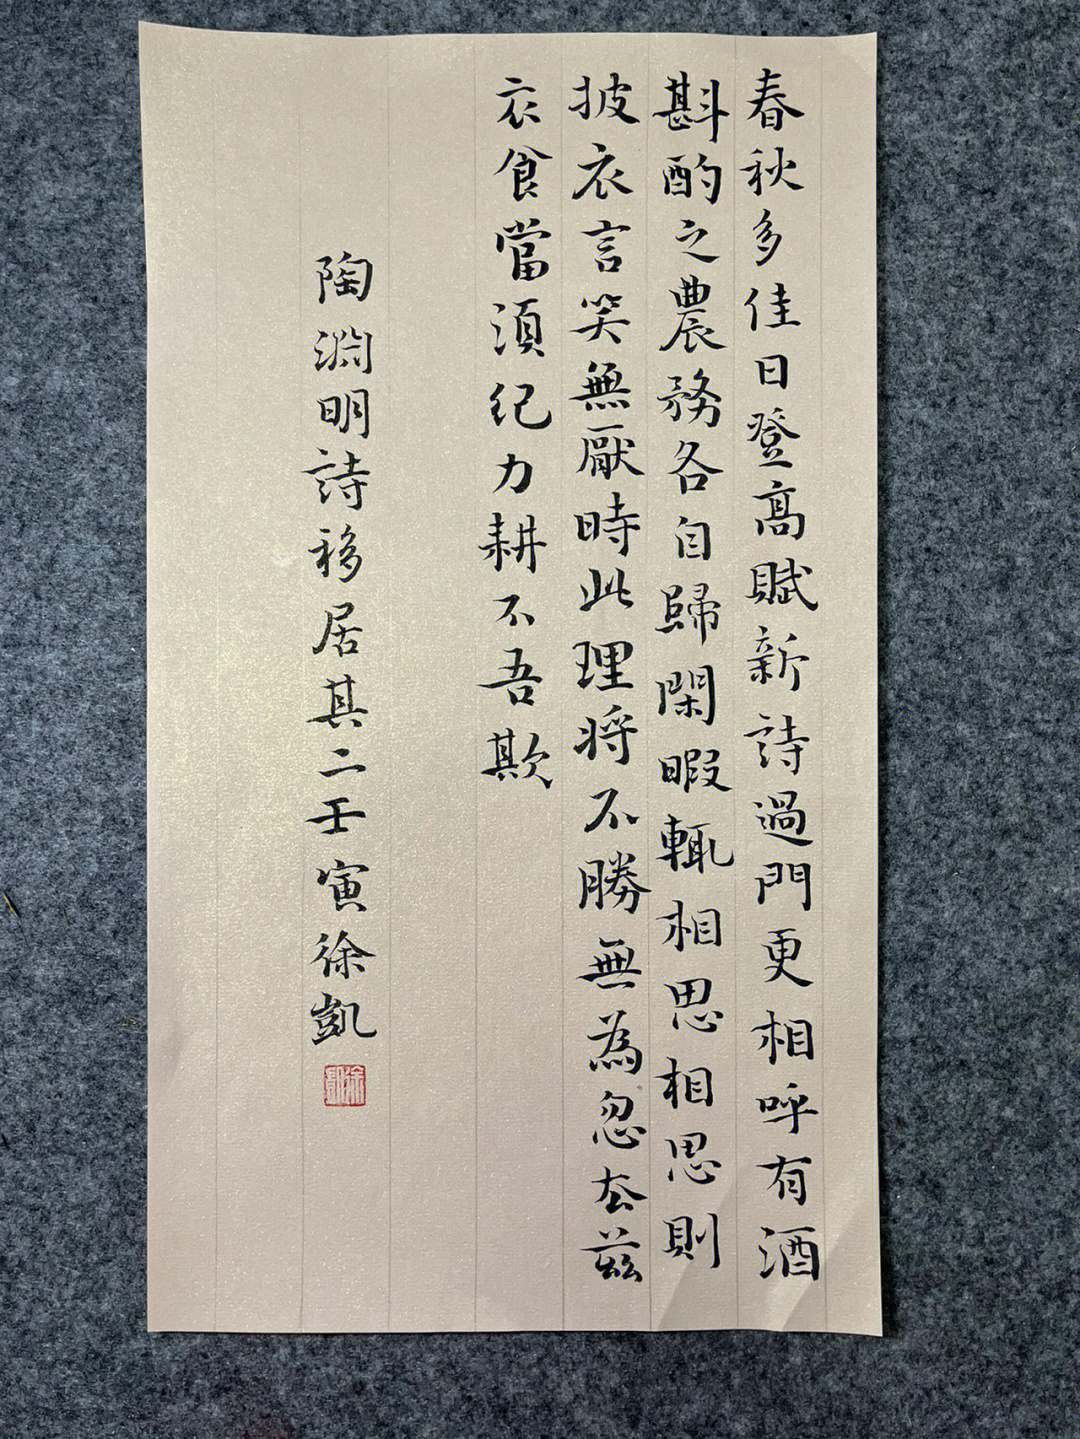 春秋多佳日登高賦新詩過門更相呼有酒
斟酌之農務各自歸閑暇輒相思相思則
披衣言笑無厭時此理將不勝無為忽去茲
衣食當須紀力耕不吾欺
陶淵明詩移居其二壬寅徐凱
徐凱